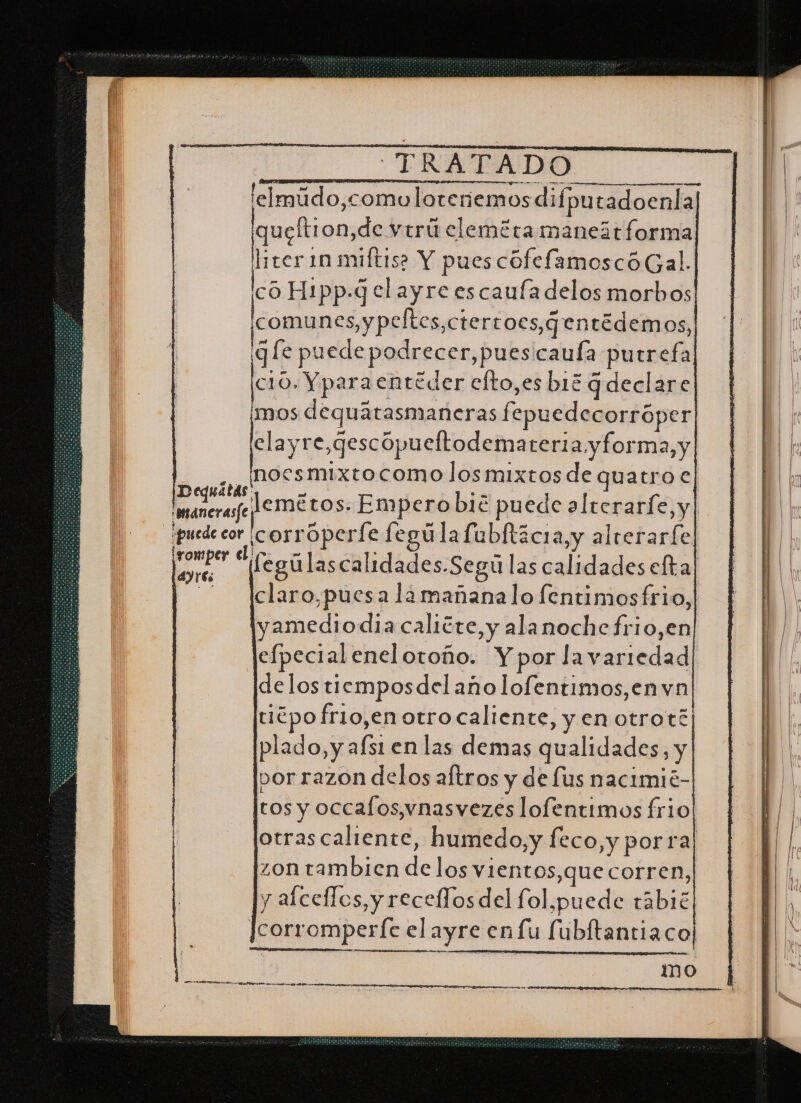 TRATADO
elmũdo,como lotenemos diſputadoenla
queſtion,de vtrũ elemẽta maneãt forma
liter in miſtis? Y pues cõfeſamos cõ Gal.
cõ Hipp.q̃ el ayre es cauſa delos morbos
comunes,y peſtes,ctertoes,q̃ entẽdemos,
q̃ ſe puede podrecer,pues cauſa putrefa
ciõ. Y para entẽder eſto,es biẽ q̃ declare
mos dequãtas maneras ſepuede corrõper
elayre,q̃es cõpueſto de materia,y forma,y
no es mixto como los mixtos de quatro e
lemẽtos. Empero biẽ puede alterarſe,y
corrõperſe ſegũ la ſubſtãcia,y alterarſe
ſegũ las calidades. Segũ las calidades eſta
claro,pues a la mañana lo ſentimos frio,
y a medio dia caliẽte,y ala noche frio,en
eſpecial enel otoño. Y por la variedad
delos tiempos del año lo ſentimos,en vn
tiẽpo frio,en otro caliente, y en otro tẽ
plado,y aſsi en las demas qualidades, y
por razon delos aſtros y de ſus nacimiẽ-
tos y occaſos,vnas vezes lo ſentimos frio
otras caliente, humedo,y ſeco,y por ra
zon tambien de los vientos,que corren,
y aſceſſos,y receſſos del ſol,puede tãbiẽ
corromperſe el ayre en ſu ſubſtantia co
mo
Dequãtas
maneras ſe
puede cor
romper el
ayre.